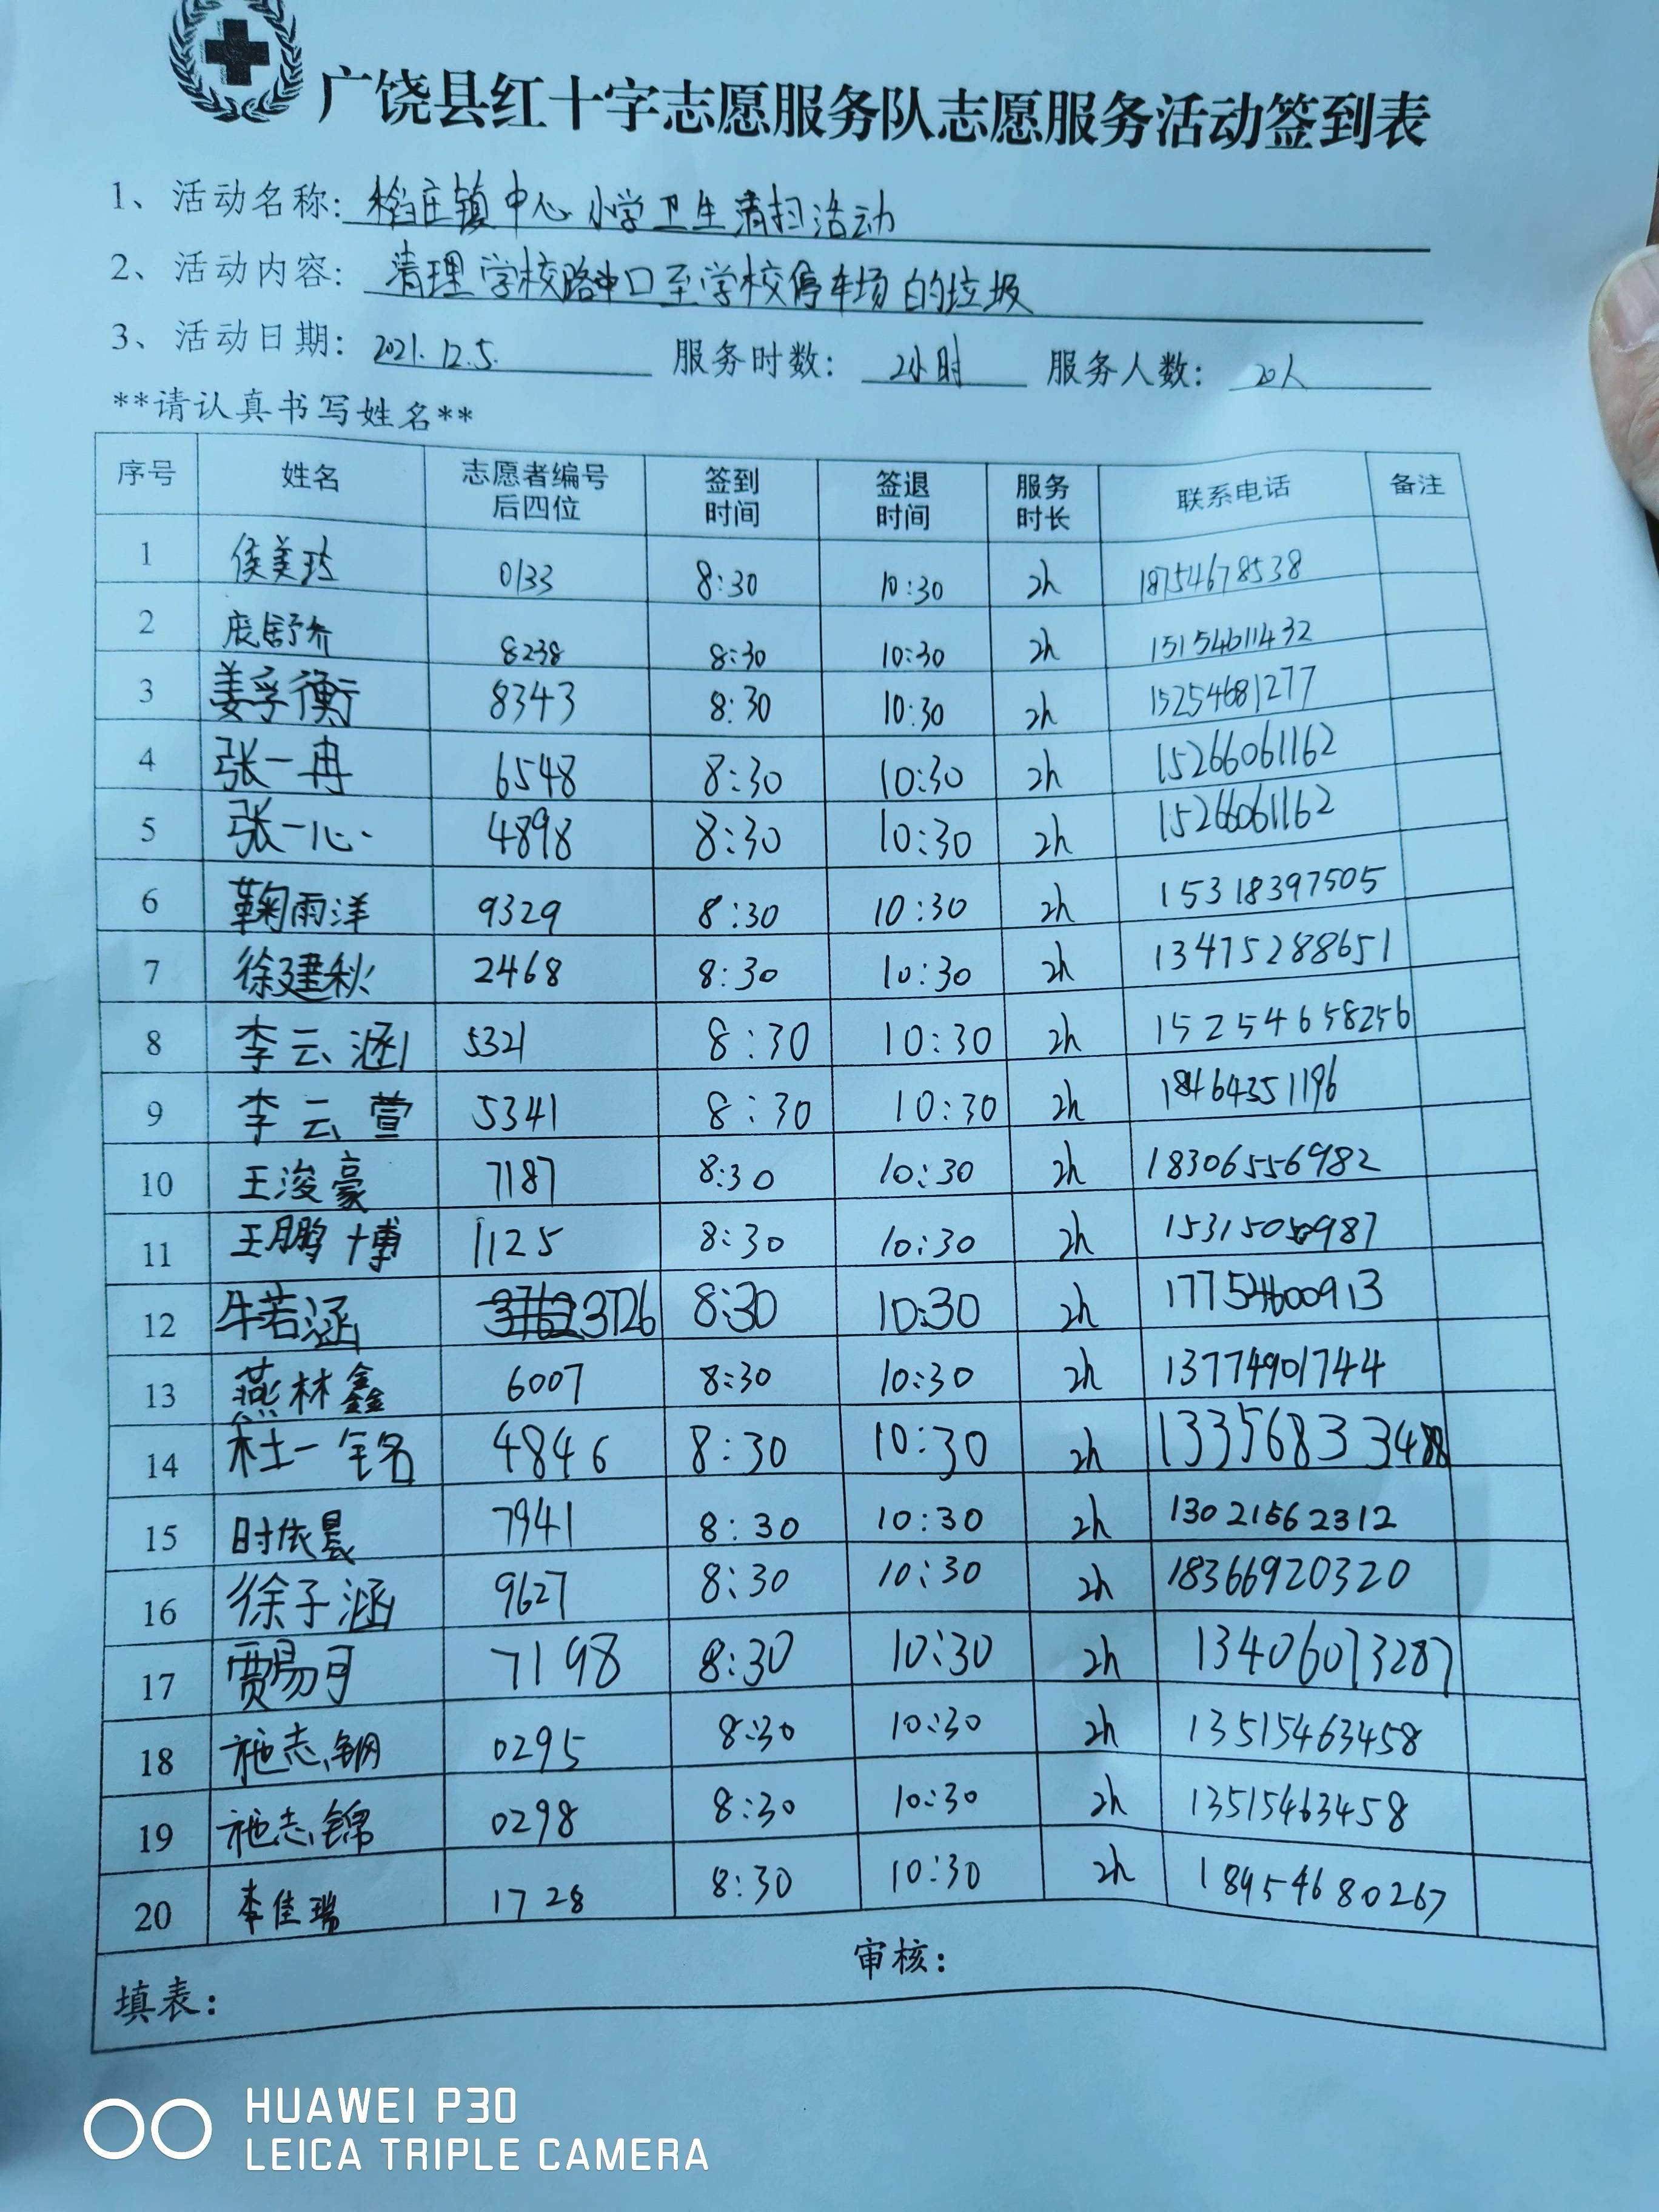 广饶县红十字志愿服务队志愿服务活动签到表
1、活动名称: 稻庄镇中心小学卫生清扫活动
2、活动内容: 清理学校路口至学校停车场的垃圾
3、活动日期: 2021.12.5. 服务时数: 2小时 服务人数: 20人
**请认真书写姓名**
序号 姓名 志愿者编号后四位 签到时间 签退时间 服务时长 联系电话 备注
1 侯美 0133 8:30 10:30 2h 18754678538
2 庞舒 8238 8:30 10:30 2h 15154611432
3 姜孚衡 8343 8:30 10:30 2h 15254681277
4 张一冉 6548 8:30 10:30 2h 15266061162
5 张一心 4898 8:30 10:30 2h 15266061162
6 鞠雨洋 9329 8:30 10:30 2h 15318397505
7 徐建秋 2468 8:30 10:30 2h 13475288651
8 李云涵 5321 8:30 10:30 2h 15254658256
9 李云萱 5341 8:30 10:30 2h 18464351196
10 王浚豪 7187 8:30 10:30 2h 18306556982
11 王鹏博 1125 8:30 10:30 2h
12 牛若涵 3726 8:30 10:30 2h 17754600913
13 燕林鑫 6007 8:30 10:30 2h 13774901744
14 杜一铭 4846 8:30 10:30 2h
15 时依晨 7941 8:30 10:30 2h 13021562312
16 徐子涵 9627 8:30 10:30 2h 18366920320
17 贾易可 7198 8:30 10:30 2h 13406073287
18 施志钢 0295 8:30 10:30 2h 13515463458
19 施志锦 0298 8:30 10:30 2h 13515463458
20 李佳瑞 1728 8:30 10:30 2h 18954680267
填表: 审核:
HUAWEI P30
LEICA TRIPLE CAMERA